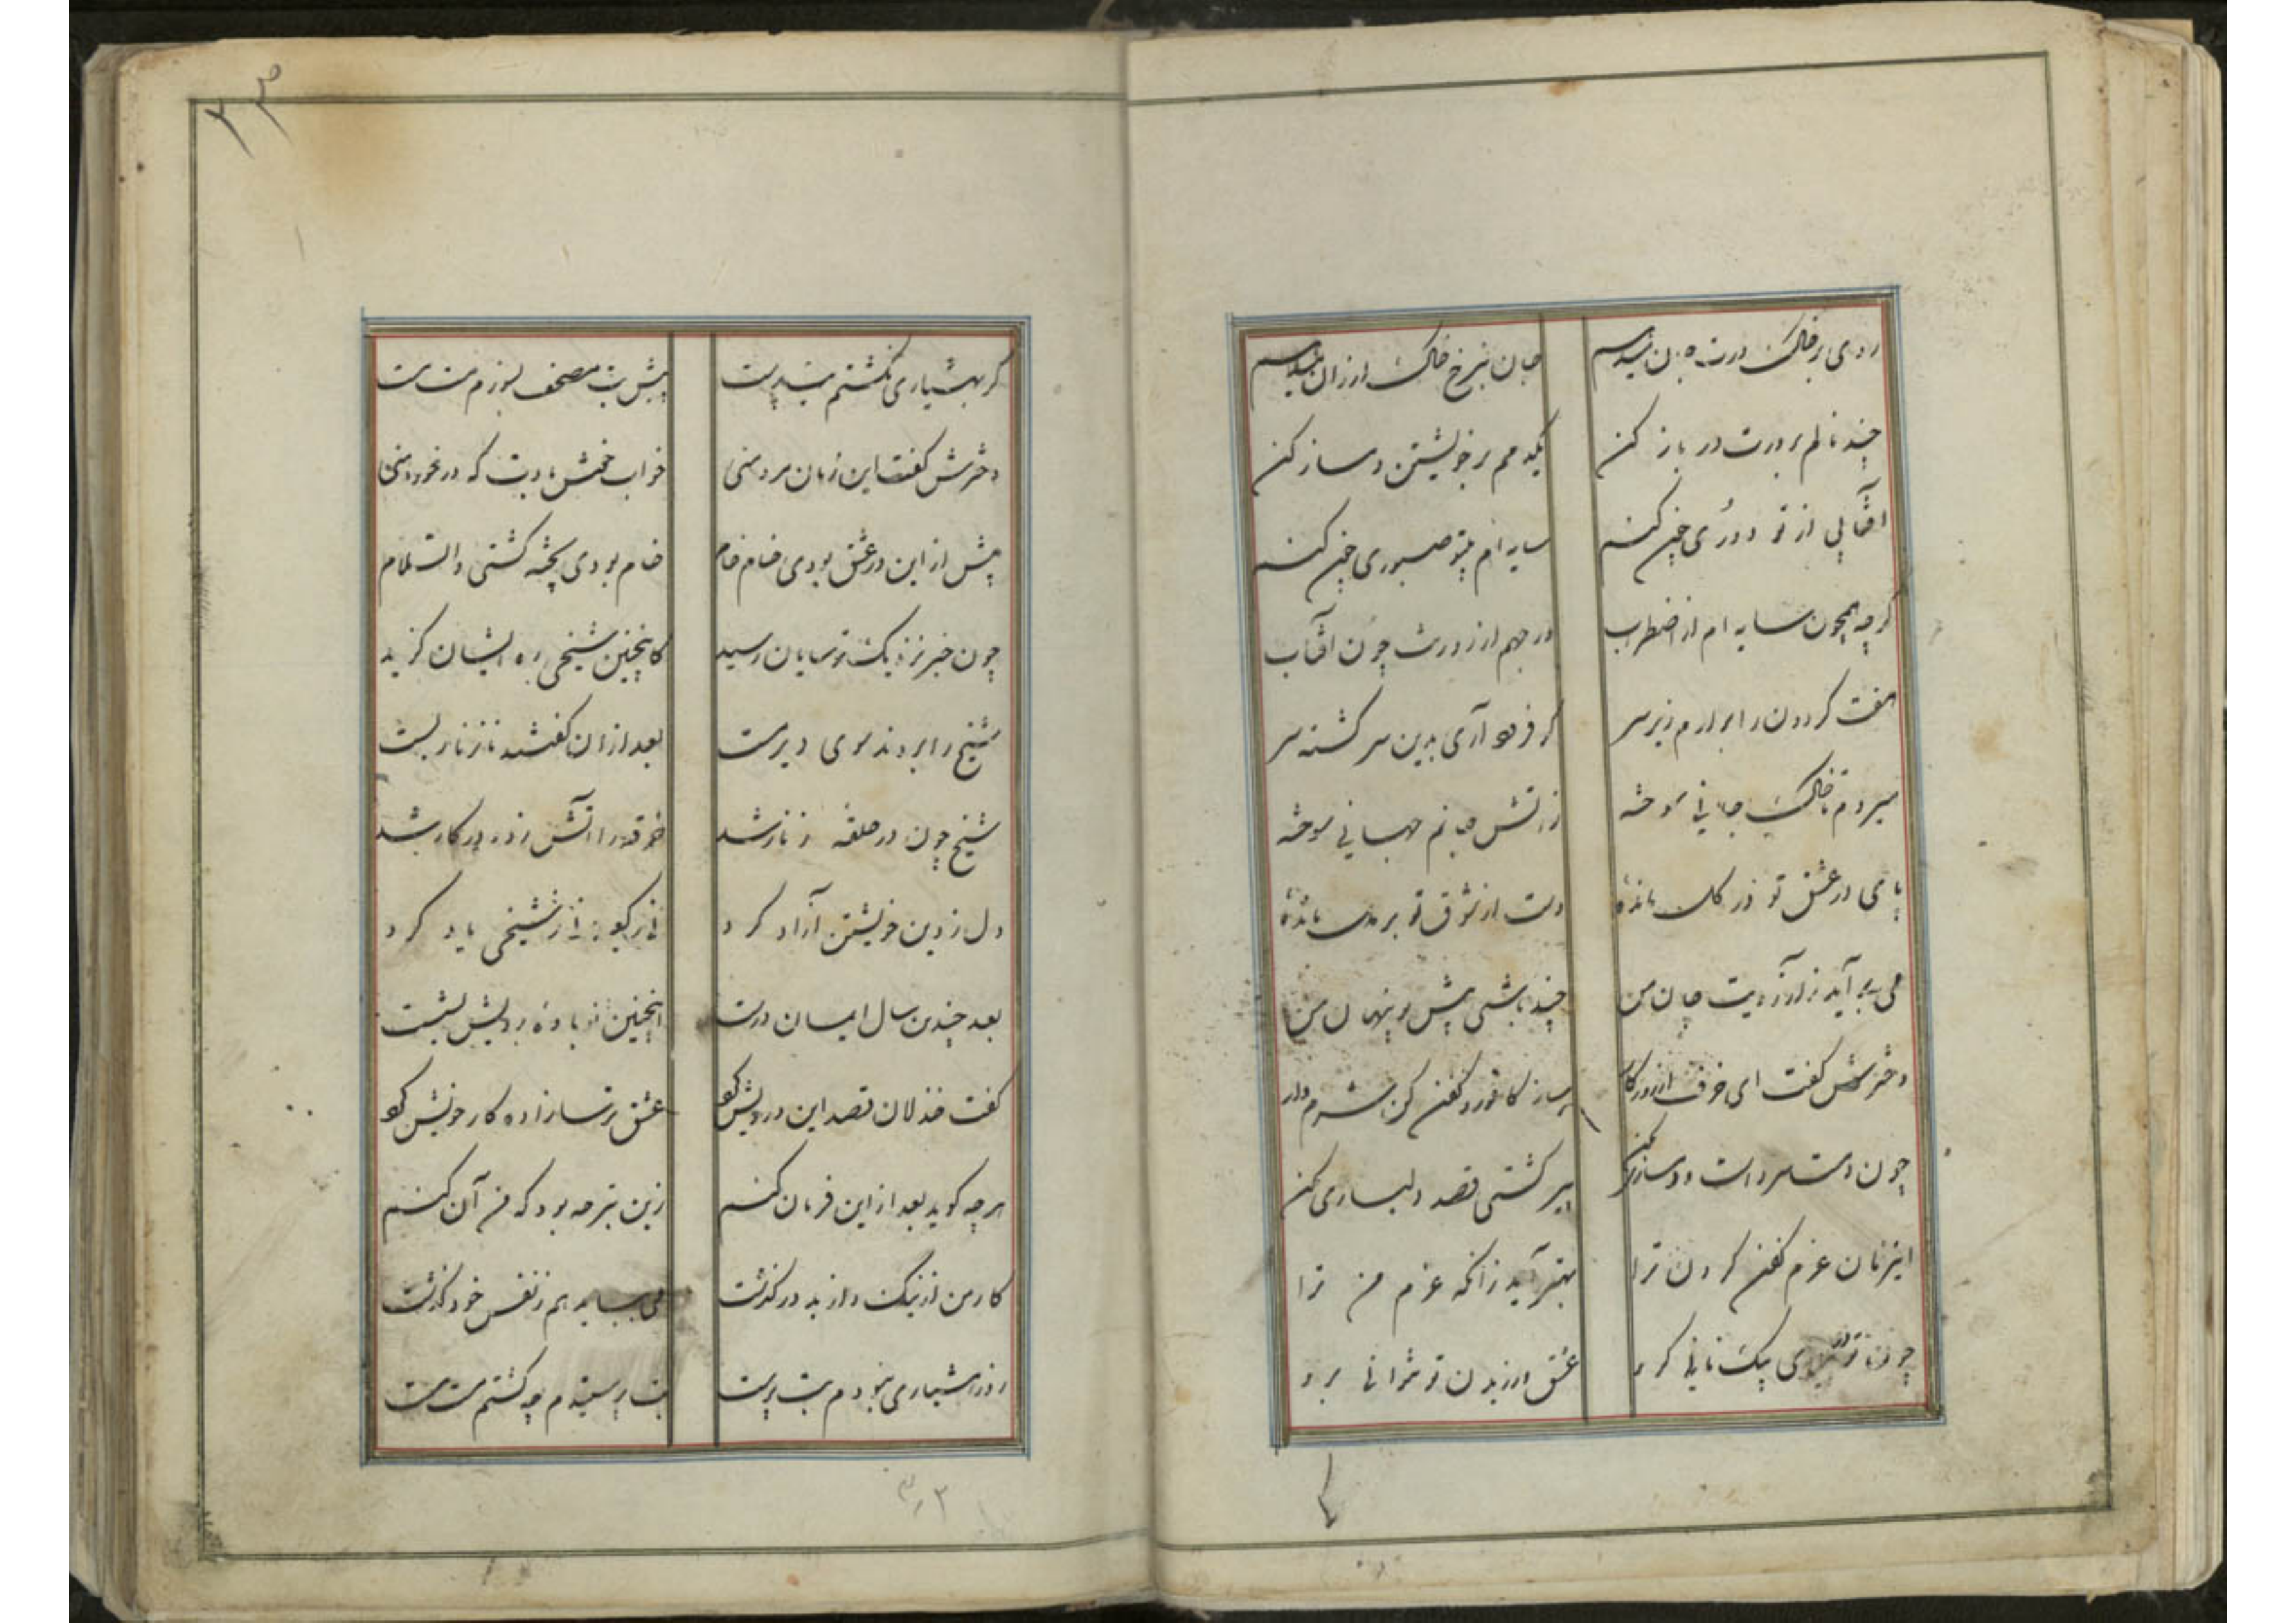 روی بر خاک درت جان میدهم جان بنرخ خاک ارزان میدهم
چند نالم بر درت در باز کن یکدمم بر خویشتن دمساز کن
آفتابی از تو دوری چون کنم سایه ام بیتو صبوری چون کنم
گرچه همچون سایه ام از اضطراب در جهم از روزنت چون آفتاب
هفت گردون را برآرم زیر سر گر فرو آری بدین سرگشته سر
میروم با خاک جانی سوخته زآتش جانم جهانی سوخته
پای در عشق تو در گل مانده دست از شوق تو بر دل مانده
می برآید ز آرزویت جان من چند باشی پیش و پنهان من
دخترش گفت ای خرف از روزگار ساز کافور و کفن کن شرم دار
چون دمت سرد است دمسازی مکن پیر گشتی قصد دلبازی مکن
این زمان عزم کفن کردن ترا بهتر آید زآنکه عزم من ترا
چون تو در پیری بیک نانی گرو عشق ورزیدن تو نتوانی برو
گر بهشیاری نگشتم بت پرست پیش بت مصحف بسوزم مست مست
دخترش گفت این زمان مرد منی خواب خوش بادت که در خورد منی
پیش از این در عشق بودی خام خام خام بودی پخته گشتی والسلام
چون خبر نزدیک ترسایان رسید کاینچنین شیخی ره ایشان گزید
شیخ را بردند سوی دیر مست بعد از آن گفتند تا زنار بست
شیخ چون در حلقه زنار شد خرقه را آتش زد و در کار شد
دل ز دین خویشتن آزاد کرد نی ز کعبه نی ز شیخی یاد کرد
بعد چندین سال ایمان درست اینچنین نوباوه رویش بشست
گفت خذلان قصد این درویش کرد عشق ترسازاده کار خویش کرد
هرچه گوید بعد از این فرمان کنم زین بتر چه بود که من آن کنم
کار من از نیک و از بد درگذشت می بباید هم ز نفس خود گذشت
روز هشیاری نبودم بت پرست بت پرستیدم چو گشتم مست مست